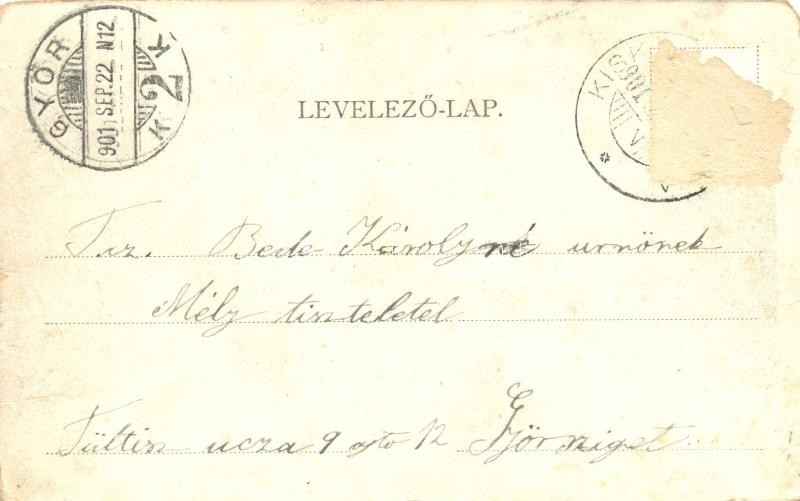 GYŐR
901 SEP. 22 N12
KIS
LEVELEZŐ-LAP.
Bede Károlyné urnőnek
Mély tisteletel
ucza 9 ajto 12 Győrsziget